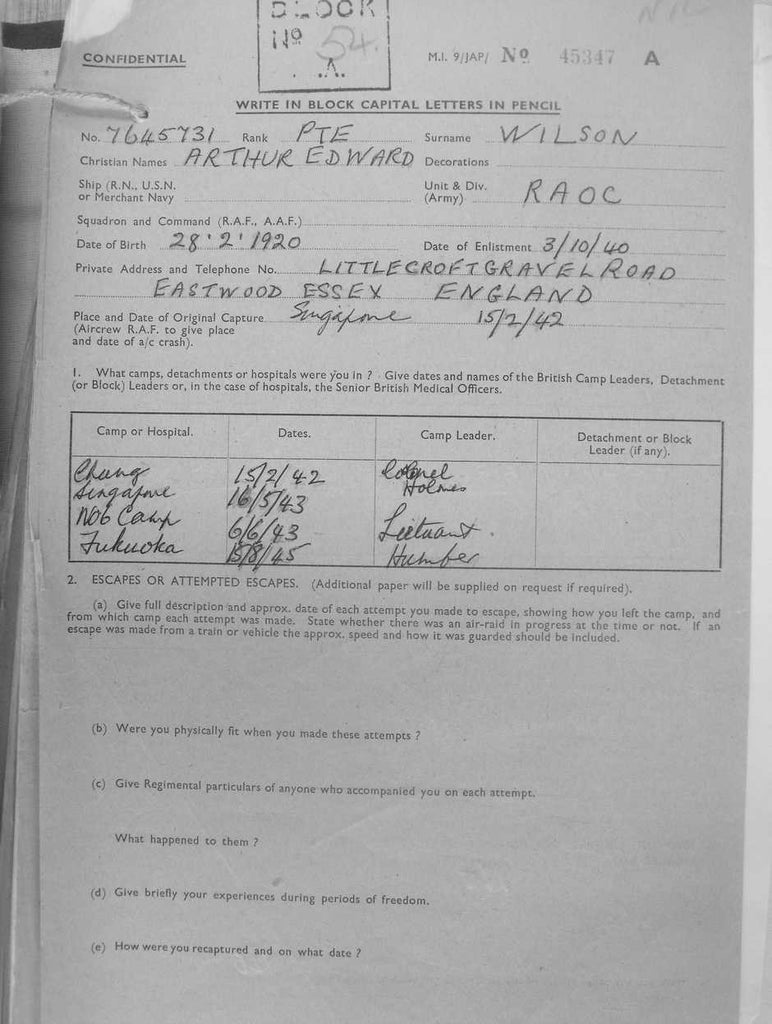 BLOCK
No 54.
A.
NIL
CONFIDENTIAL
M.I. 9/JAP/ No 45347 A
WRITE IN BLOCK CAPITAL LETTERS IN PENCIL
No. 7645731 Rank PTE Surname WILSON
Christian Names ARTHUR EDWARD Decorations
Ship (R.N., U.S.N. or Merchant Navy
Unit & Div. (Army) RAOC
Squadron and Command (R.A.F., A.A.F.)
Date of Birth 28'2'1920 Date of Enlistment 3/10/40
Private Address and Telephone No. LITTLECROFT GRAVEL ROAD
EASTWOOD ESSEX ENGLAND
Place and Date of Original Capture Singapore 15/2/42
(Aircrew R.A.F. to give place
and date of a/c crash).
1. What camps, detachments or hospitals were you in ? Give dates and names of the British Camp Leaders, Detachment
(or Block) Leaders or, in the case of hospitals, the Senior British Medical Officers.
Camp or Hospital. Dates. Camp Leader. Detachment or Block
Leader (if any).
15/2/42 Colonel
Singapore 16/5/43 Holmes
No 6 Camp 6/6/43
Fukuoka 15/8/45 Humber
2. ESCAPES OR ATTEMPTED ESCAPES. (Additional paper will be supplied on request if required).
(a) Give full description and approx. date of each attempt you made to escape, showing how you left the camp, and
from which camp each attempt was made. State whether there was an air-raid in progress at the time or not. If an
escape was made from a train or vehicle the approx. speed and how it was guarded should be included.
(b) Were you physically fit when you made these attempts ?
(c) Give Regimental particulars of anyone who accompanied you on each attempt.
What happened to them ?
(d) Give briefly your experiences during periods of freedom.
(e) How were you recaptured and on what date ?